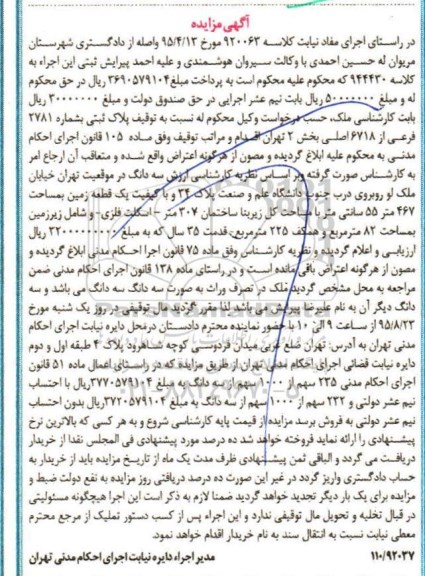 آگهی مزایده
در راستای اجرای مفاد نیابت کلاسه ۹۲۰۰۶۳ مورخ ۹۵/۴/۱۳ واصله از دادگستری شهرستان
مریوان له حسین احمدی با وکالت سیروان هوشمندی و علیه احمد پیرایش ثبتی این اجراء به
کلاسه ۹۴۴۴۳۰ که محکوم علیه محکوم است به پرداخت مبلغ ۳۶۹۰۵۷۹۱۰۴ ریال در حق محکوم
له و مبلغ ۵۰۰۰۰۰۰۰ ریال بابت نیم عشر اجرایی در حق صندوق دولت و مبلغ ۳۰۰۰۰۰۰۰ ریال
بابت کارشناسی ملک، حسب درخواست وکیل محکوم له نسبت به توقیف پلاک ثبتی بشماره ۲۷۸۱
فرعی از ۶۷۱۸ اصلی بخش ۲ تهران اقدام و مراتب توقیف وفق ماده ۱۰۵ قانون اجرای احکام
مدنی به محکوم علیه ابلاغ گردیده و مصون از هرگونه اعتراض واقع شده و متعاقب آن ارجاع امر
به کارشناس صورت گرفته و بر اساس نظریه کارشناسی ارزش سه دانگ در موقعیت تهران خیابان
ملک لو روبروی درب جنوب دانشگاه علم و صنعت پلاک ۳۴ و با کیفیت یک قطعه زمین بمساحت
۴۶۷ متر ۵۵ سانتی متر با مساحت کل زیربنا ساختمان ۳۰۴ متر - اسکلت فلزی- و شامل زیرزمین
بمساحت ۸۲ مترمربع و همکف ۲۲۵ مترمربع، قدمت ۳۵ سال که به مبلغ ۲۲۰۰۰۰۰۰۰۰۰ ریال
ارزیابی و اعلام گردید و نظریه کارشناس وفق ماده ۷۵ قانون اجرا احکام مدنی ابلاغ گردیده و
مصون از هرگونه اعتراض باقی مانده است و در راستای ماده ۱۳۸ قانون اجرای احکام مدنی ضمن
مراجعه به محل مشخص گردید ملک در تصرف وراث به صورت سه دانگ سه دانگ می باشد و سه
دانگ دیگر آن به نام علیرضا پیرایش می باشد لذا مقرر گردید مال توقیفی در روز یک شنبه مورخ
۹۵/۸/۲۳ از ساعت ۹ الی ۱۰ با حضور نماینده محترم دادستان درمحل دایره نیابت اجرای احکام
مدنی تهران به آدرس: تهران ضلع غربی میدان فردوسی کوچه شاهرود پلاک ۴ طبقه اول و دوم
دایره نیابت قضائی اجرای احکام مدنی تهران از طریق مزایده که در راستای اعمال ماده ۵۱ قانون
اجرای احکام مدنی ۲۳۵ سهم از ۱۰۰۰ سهم از سه دانگ به مبلغ ۳۷۷۰۵۷۹۱۰۴ ریال با احتساب
نیم عشر دولتی و ۲۳۲ سهم از ۱۰۰۰ سهم از سه دانگ به مبلغ ۳۷۲۰۵۷۹۱۰۴ ریال بدون احتساب
نیم عشر دولتی به فروش برسد مزایده از قیمت پایه کارشناسی شروع و به هر کسی که بالاترین نرخ
پیشنهادی را ارائه نماید فروخته خواهد شد ده درصد مورد پیشنهادی فی المجلس نقدا از خریدار
دریافت می گردد و الباقی ثمن پیشنهادی ظرف مدت یک ماه از تاریخ مزایده باید از خریدار به
حساب دادگستری واریز گردد در غیر این صورت ده درصد دریافتی روز مزایده به نفع دولت ضبط و
مزایده برای یک بار دیگر تجدید خواهد گردید ضمنا لازم به ذکر است این اجرا هیچگونه مسئولیتی
در قبال تخلیه و تحویل مال توقیفی ندارد و این اجراء پس از کسب دستور تملیک از مرجع محترم
معطی نیابت نسبت به انتقال سند به نام خریدار اقدام خواهد نمود.
۱۱۰/۹۲۰۳۷ مدیر اجراء دایره نیابت اجرای احکام مدنی تهران